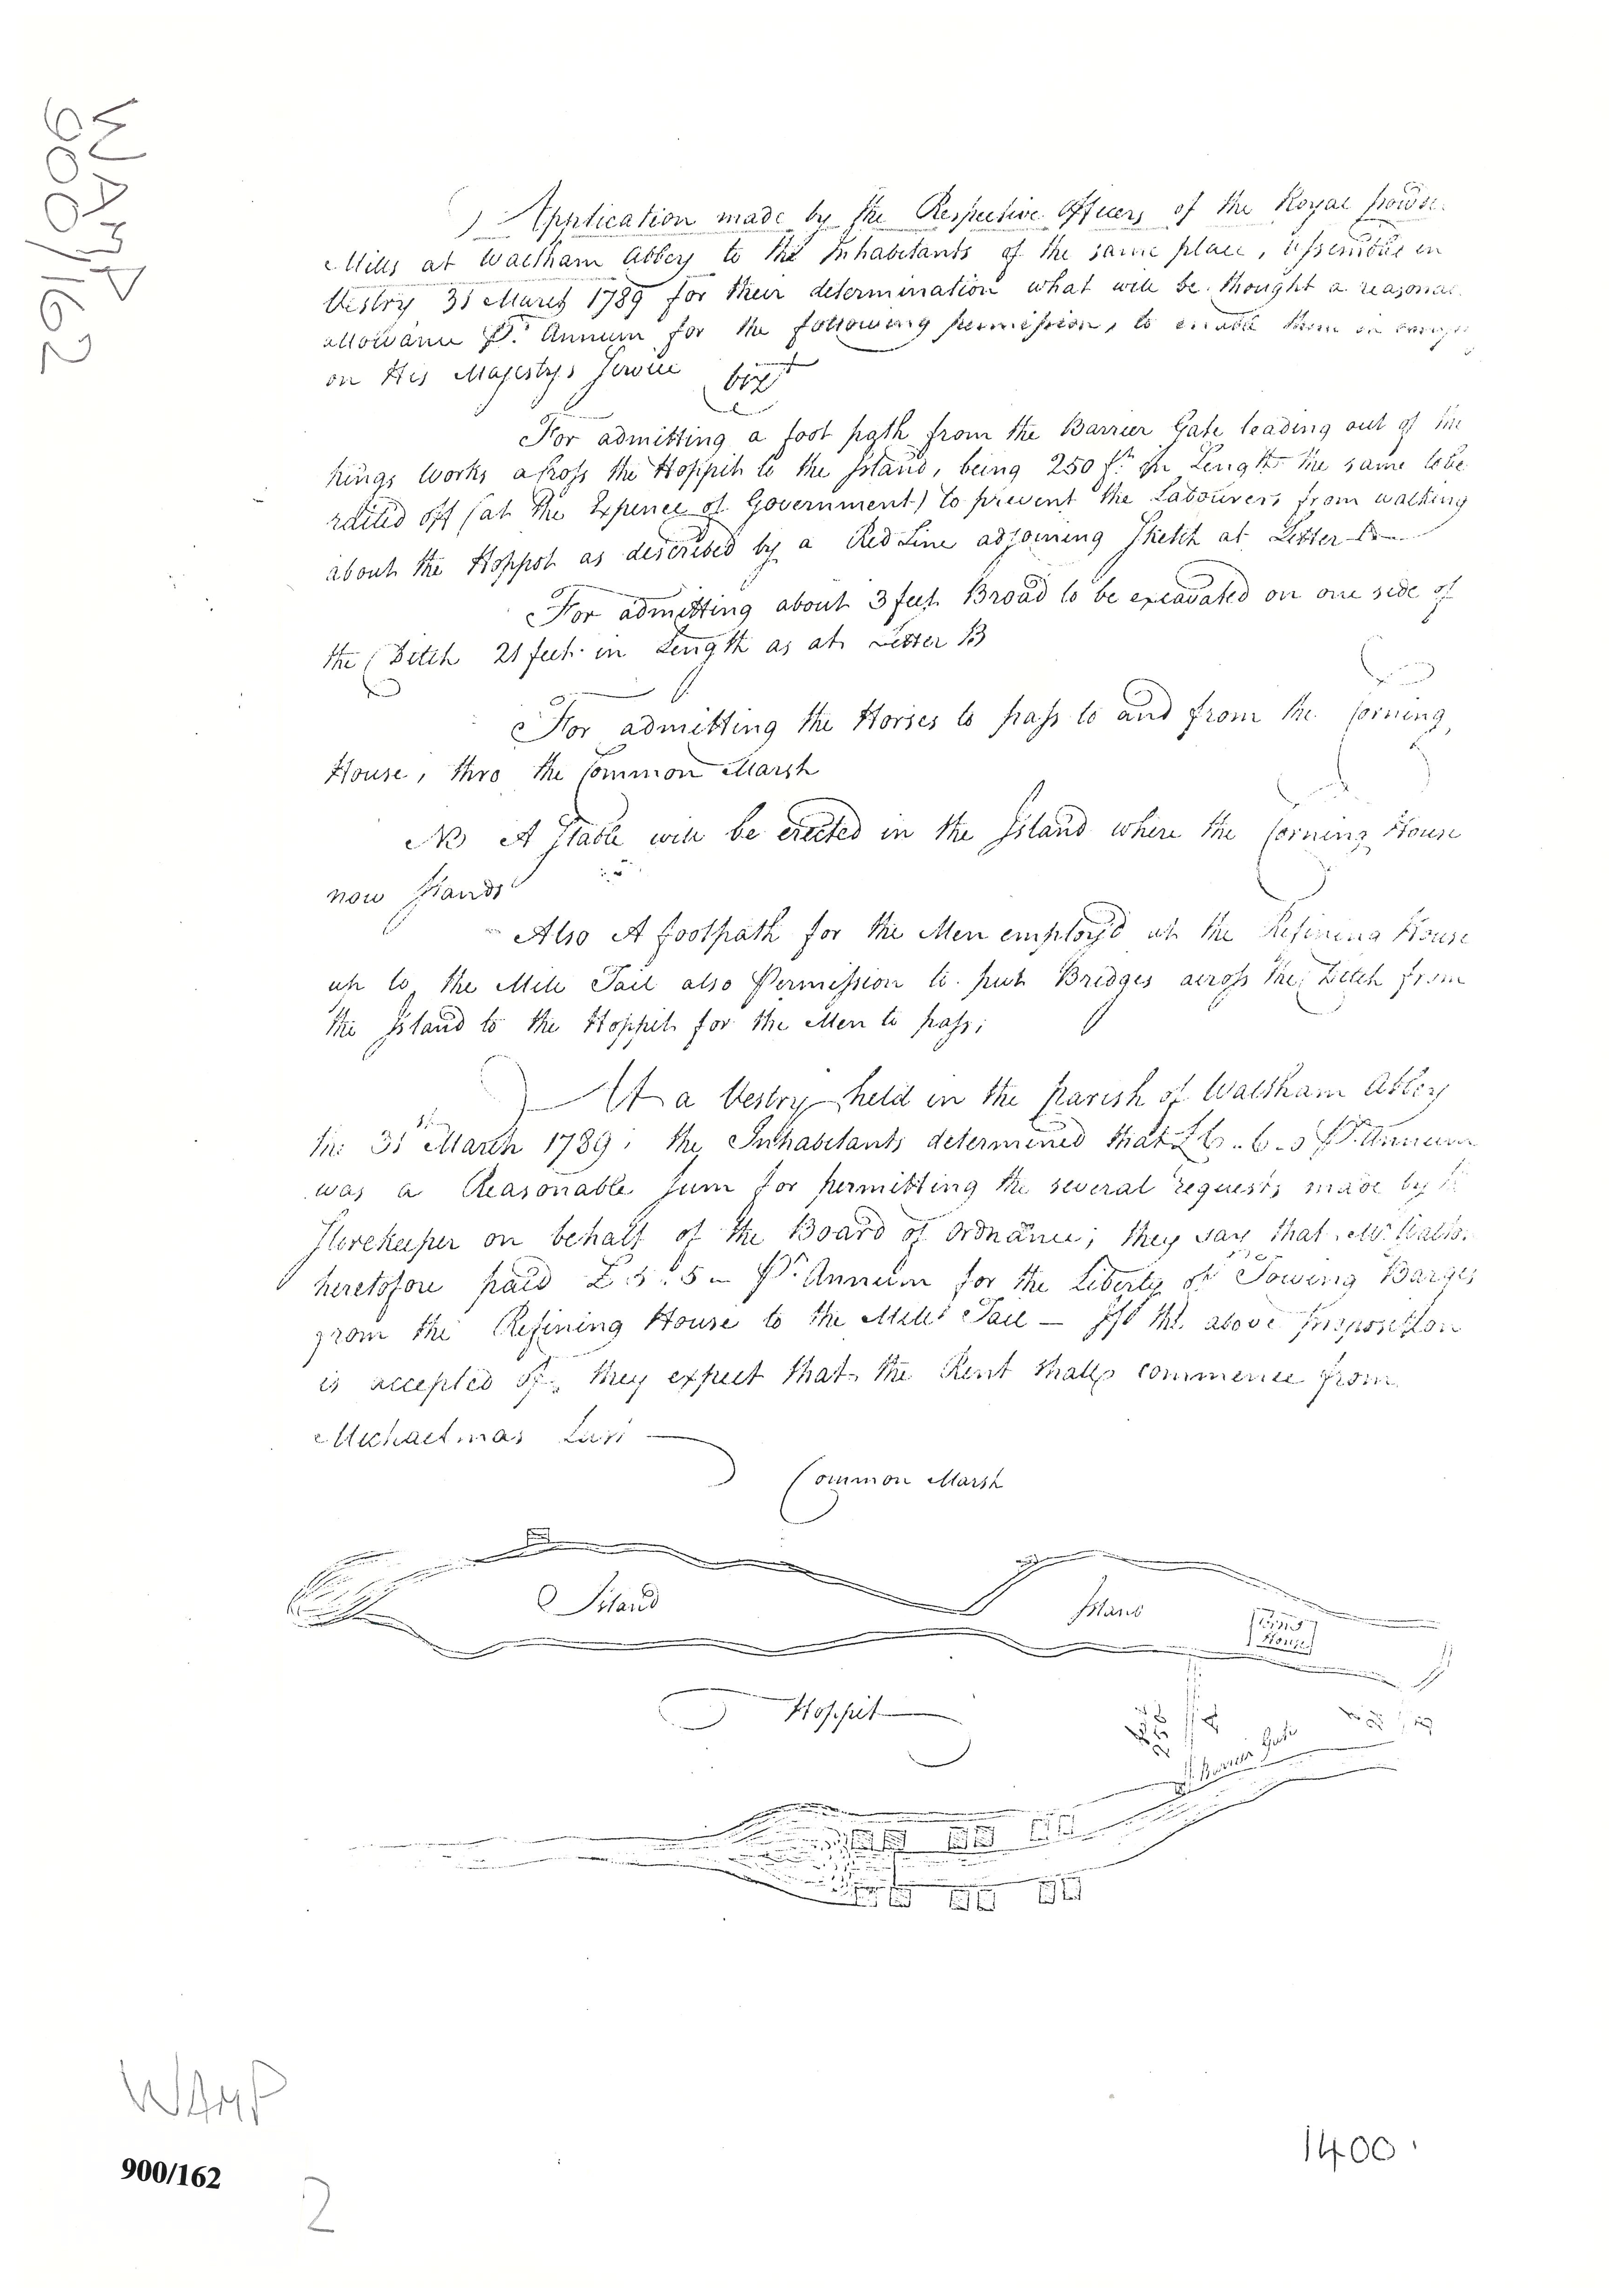 WAMP
900/162
Application made by the Respective Officers of the Royal Powder
Mills at Waltham Abbey to the Inhabitants of the same place, assembled in
Vestry 31 March 1789 for their determination what will be thought a reasonal
allowance Pr. Annum for the following permission, to enable them in carrying
on His Majestys Service vizt
For admitting a foot path from the Barrier Gate leading out of the
Kings Works across the Hoppit to the Island, being 250 ft. in Length the same to be
railed off (at the Expence of Government) to prevent the Labourers from walking
about the Hoppot as described by a Red Line adjoining Sketch at Letter
For admitting about 3 feet Broad to be excavated on one side of
the Ditch 21 feet in Length as at Letter B
For admitting the Horses to pass to and from the Corning
House, thro the Common Marsh
NB A Stable will be erected in the Island where the Corning House
now Stands
Also A footpath for the Men employ'd at the Refining House
up to the Mill Tail also Permission to put Bridges across the Ditch from
the Island to the Hoppit for the Men to pass;
At a Vestry held in the parish of Waltham Abbey
the 31st March 1789; the Inhabitants determined that £ 6 .. 6 .. 0 Pr. Annum
was a Reasonable Sum for permitting the several requests made by
Storekeeper on behalf of the Board of Ordnance; they say that Mr. Walton
heretofore paid £ 5 .. 5 .. Pr. Annum for the Liberty of Towing Barges
from the Refining House to the Mills Tail — If the above proposition
is accepted of, they expect that the Rent shall commence from
Michaelmas Last
Common Marsh
Island
Island
House
Hoppit
Barrier Gate
WAMP
900/162
2
1400